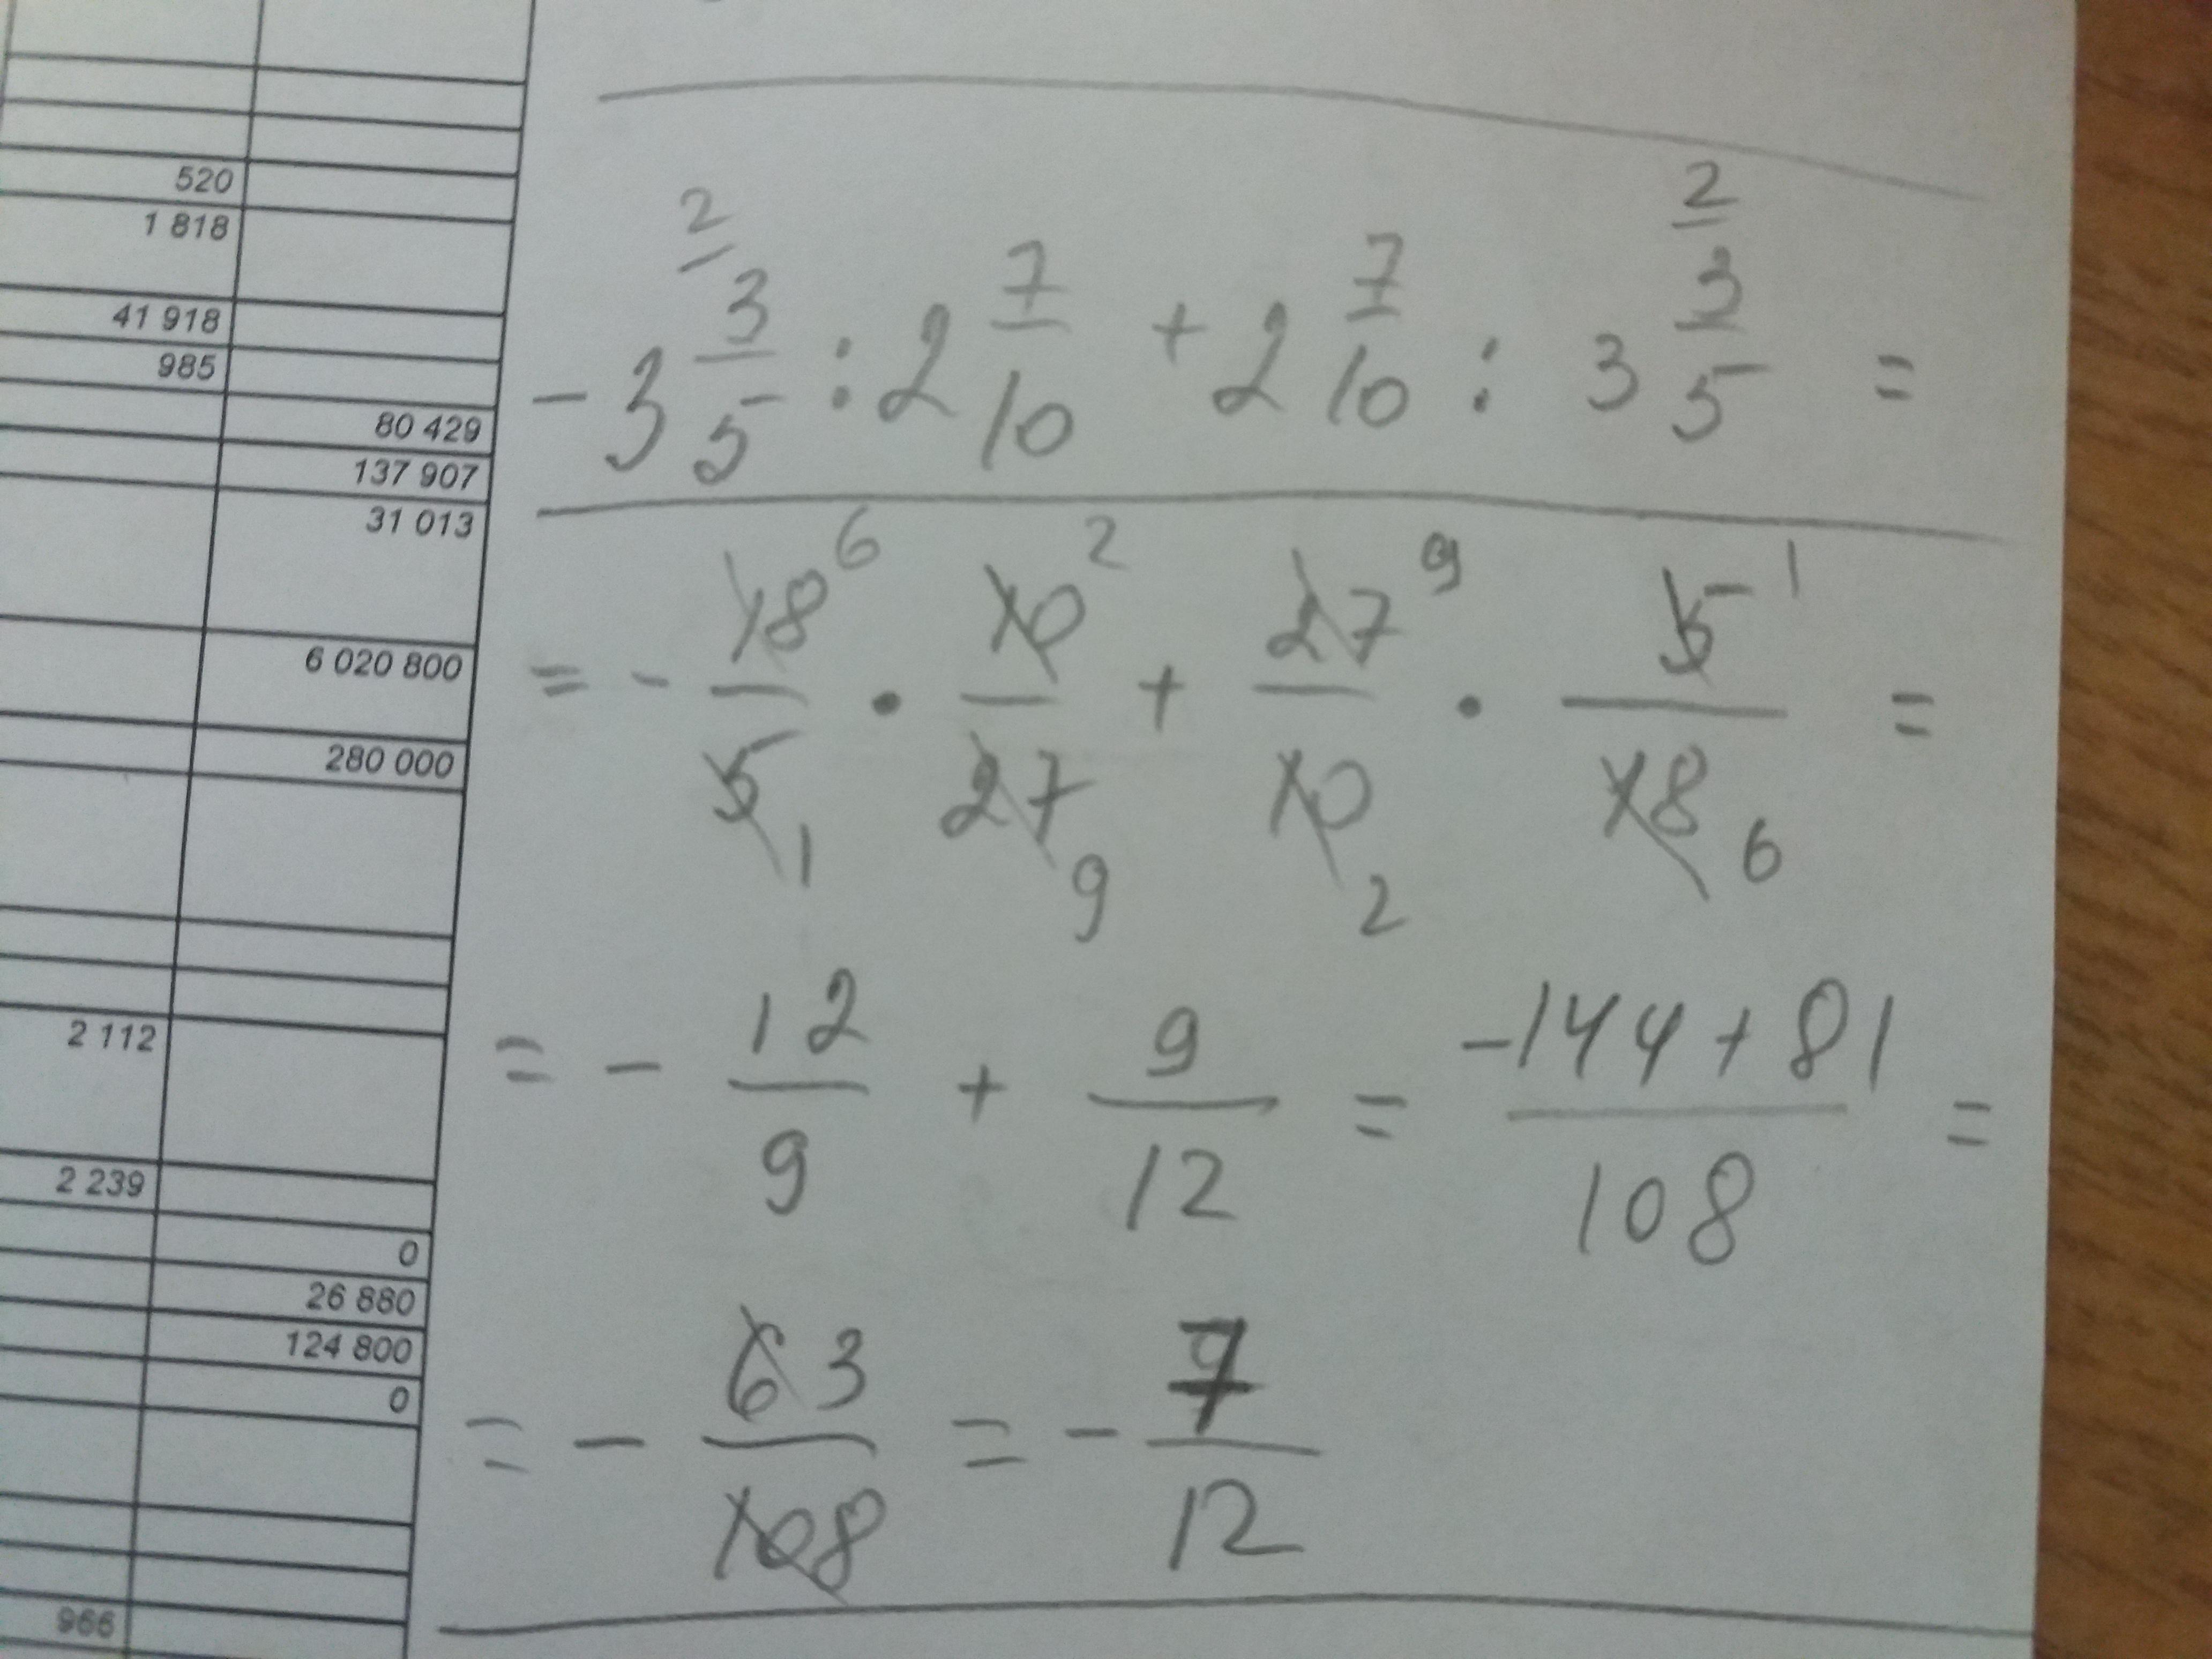 520
1 818
41 918
985
80 429
137 907
31 013
6 020 800
280 000
2 112
2 239
0
26 880
124 800
0
966
2 2
- 3 3/5 : 2 7/10 + 2 7/10 : 3 3/5 =
= - 18 6/5 1 · 10 2/27 9 + 27 9/10 2 · 5 1/18 6 =
= - 12/9 + 9/12 = -144+81/108 =
= - 63/108 = - 7/12